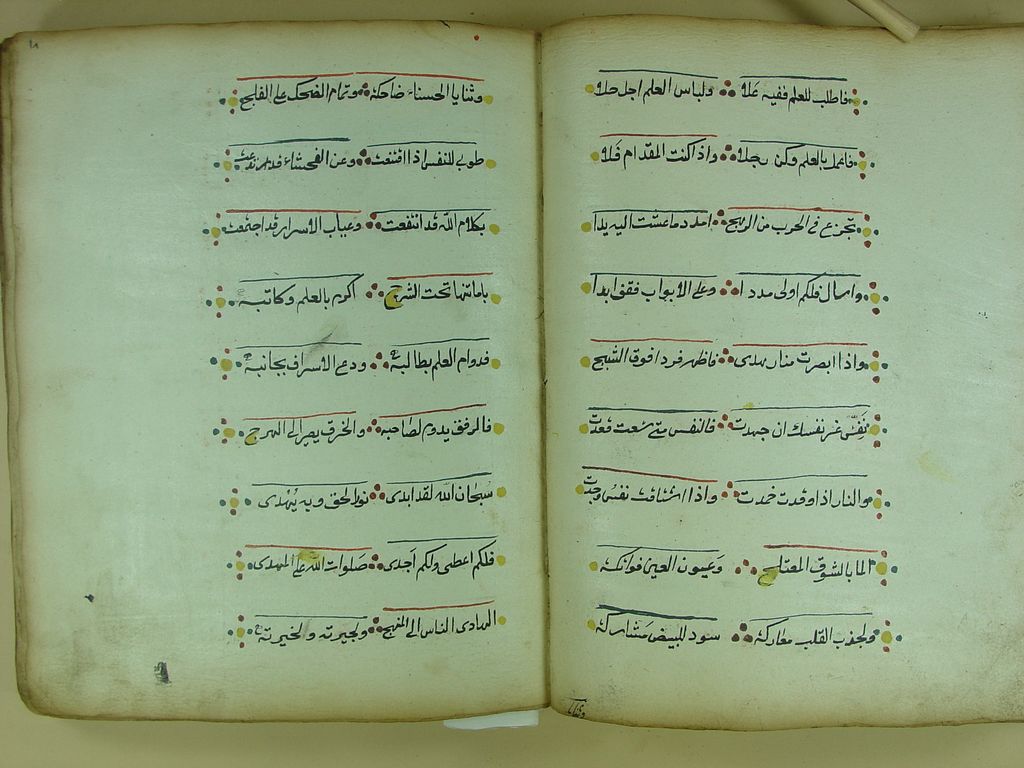 فاطلب للعلم ففيه علا ولباس العلم اجل حلا
فاعمل بالعلم وكن رجلا واذا كنت المقدام فلا
تجزع فى الحرب من الرهج امدد ما عشت اليه يدا
واسال فلكم اولى مددا وعلى الابواب فقف ابدا
واذا ابصرت منار هدى فاظهر فردا فوق الثبج
نفس غر نفسك ان جهدت فالنفس متى شعت قعدت
والنار اذا وقدت خمدت واذا اشتاقت نفس وجدت
الما بالشوق المعتلج وعيون العين فواتكة
ولجذب القلب معاركة سود للبيض مشاركة
وثنايا
١٨
وثنايا الحسناء ضاحكة وتمام الضحك على الفلج
طوبى للنفس اذا اقتنعت وعن الفحشاء قد
بكلام الله قد انتفعت وعياب الاسرار قد اجتمعت
بامانتها تحت الشرج اكرم بالعلم وكاتبه
فدوام العلم بطالبه ودع الاسراف بجانبه
فالرفق يدوم لصاحبه والخرق يصير الى الهرج
سبحان الله لقد ابدى نور الحق وبه يهدى
فلكم اعطى ولكم اجدى صلوات الله على المهدى
الهادى الناس الى المنهج ولجيرته ولخيرته